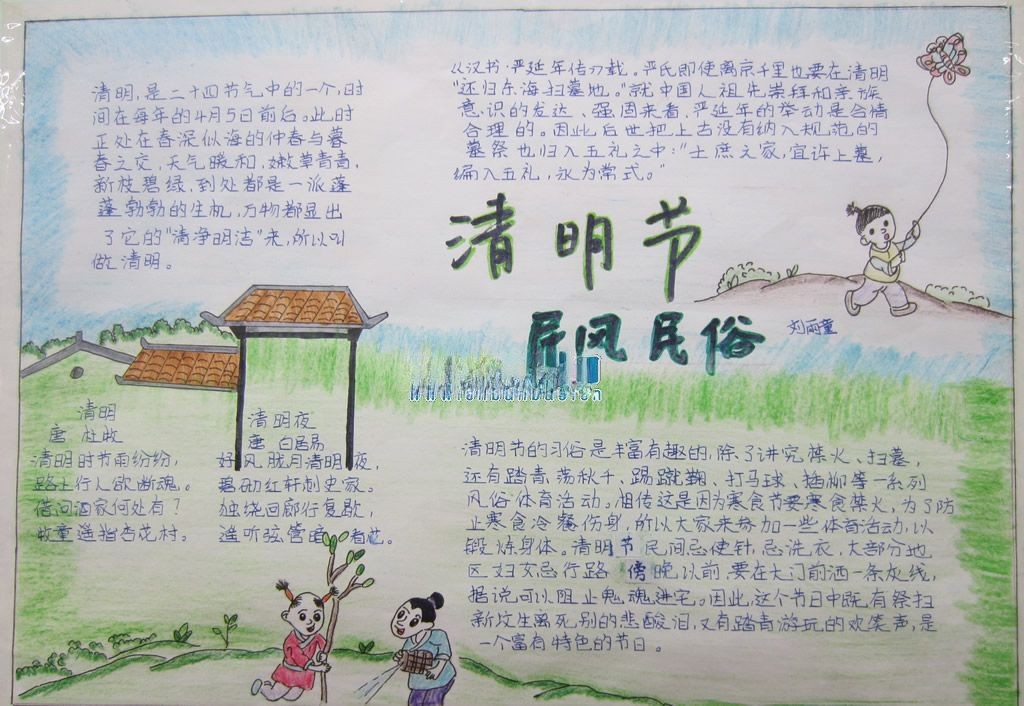 清明,是二十四节气中的一个,时
间在每年的4月5日前后。此时
正处在春深似海的仲春与暮
春之交,天气暖和,嫩草青青,
新枝碧绿,到处都是一派蓬
蓬勃勃的生机,万物都显出
了它的"清净明洁"来,所以叫
做清明。
从汉书·严延年传刀载。严氏即使离京千里也要在清明
"还归东海扫墓地。"就中国人祖先崇拜和亲族
意识的发达、强固来看,严延年的举动是合情
合理的。因此后世把上古没有纳入规范的
墓祭也归入五礼之中:"士庶之家,宜许上墓,
编入五礼,永为常式。"
清明节
民风民俗
刘雨童
清明
唐 杜牧
清明时节雨纷纷,
路上行人欲断魂。
借问酒家何处有?
牧童遥指杏花村。
清明夜
唐 白居易
好风胧月清明夜,
碧砌红轩刺史家。
独绕回廊行复歇,
遥听弦管暗看花。
清明节的习俗是丰富有趣的,除了讲究禁火、扫墓,
还有踏青、荡秋千、踢蹴鞠、打马球、插柳等一系列
风俗体育活动。相传这是因为寒食节要寒食禁火,为了防
止寒食冷餐伤身,所以大家来参加一些体育活动,以
锻炼身体。清明节民间忌使针,忌洗衣,大部分地
区妇女忌行路。傍晚以前,要在大门前洒一条灰线,
据说可以阻止鬼魂进宅。因此,这个节日中既有祭扫
新坟生离死别的悲酸泪,又有踏青游玩的欢笑声,是
一个富有特色的节日。